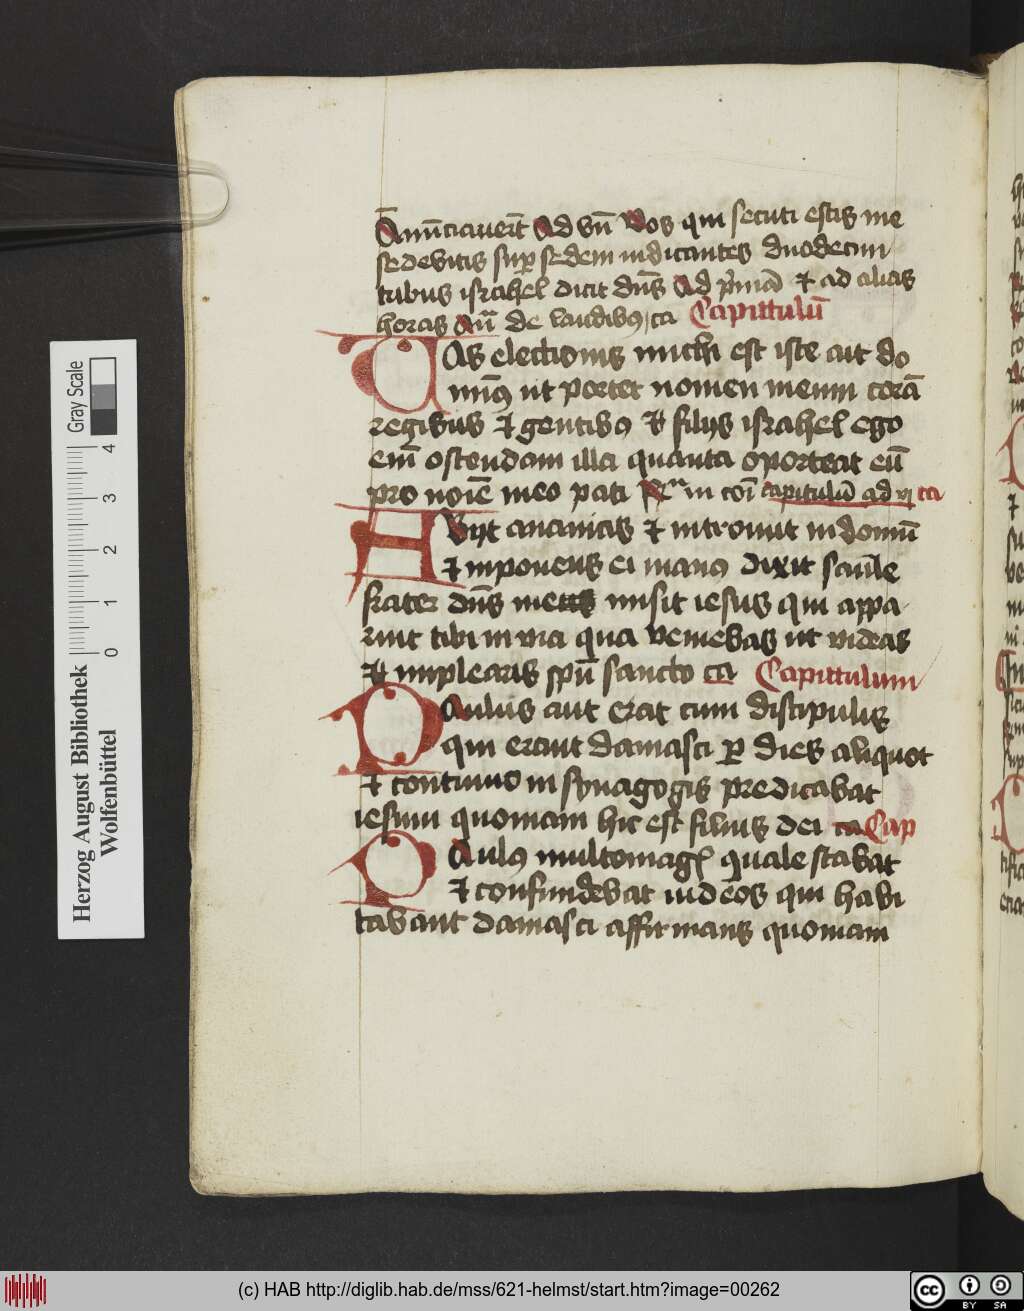 An̄ūciaueꝛt̄ Ad vn̄ Vos qui secuti estis me
sedebitis suꝑ sedem iudicantes duodecim
tribus israhel dicit dn̄s Ad p̄mā ⁊ ad alias
horas An̄ de laudibꝯ ꝛc̄a Capittulū
Vas electionis michi est iste ait do
minꝯ ut portet nomen meum corā
regibus ⁊ gentibꝯ ⁊ filijs israhel ego
em̄ ostendam illi quanta oporteat eū
pro noīe meo pati in coī capitulū ad vi
Abijt ananias ⁊ introiuit in domū
⁊ inponens ei manꝯ dixit saule
frater dn̄s misit iesus qui appa
ruit tibi in via qua veniebas ut videas
⁊ implearis spū sancto Capittulum
Paulus aut erat cum discipulis
qui erant damasci ꝑ dies aliquot
⁊ continuo in synagogis predicabat
iesum quoniam hic est filius dei Cap
Paulꝯ multomagꝭ qualestabat
⁊ confundebat iudeos qui habi
tabant damasci affirmans quoniam
Herzog August Bibliothek
Wolfenbüttel
0 1 2 3 4
Gray Scale
(c) HAB http://diglib.hab.de/mss/621-helmst/start.htm?image=00262
cc BY SA